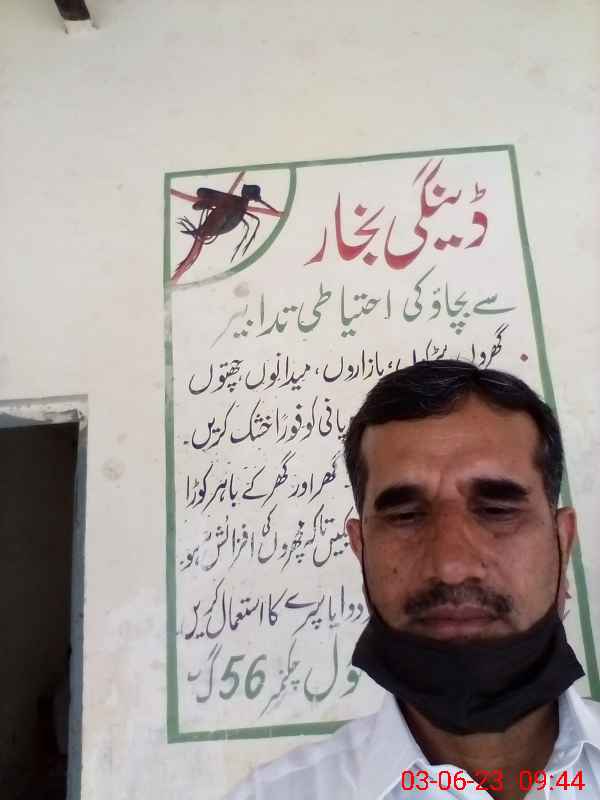 ڈینگی بخار
سے بچاؤ کی احتیاطی تدابیر
گھروں، بازاروں، میدانوں، چھتوں
پانی کو فوراً خشک کریں۔
گھر اور گھر کے باہر کوڑا
تاکہ مچھروں کی افزائش نہ ہو۔
دوا یا سپرے کا استعمال کریں
چکنمبر 56 گ ب
03-06-23 09:44